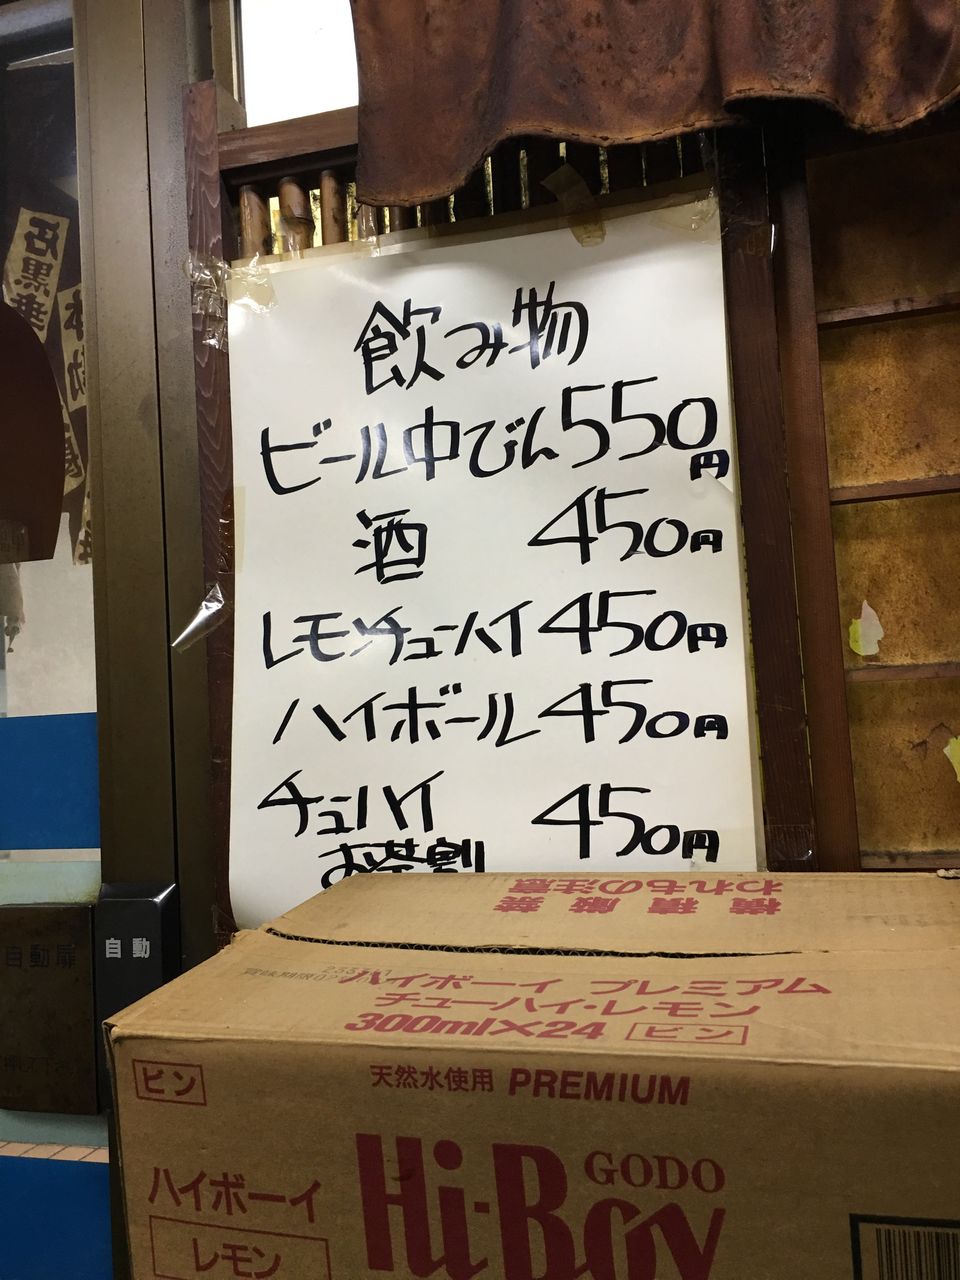 飲み物
ビール中びん550円
酒 450円
レモンチューハイ450円
ハイボール450円
チューハイ 450円
お茶割
石黒
自動
自動扉
横積厳禁
われもの注意
ハイボーイ プレミアム
チューハイ・レモン
300ml×24 ビン
ビン
天然水使用 PREMIUM
ハイボーイ
レモン
Hi-Boy
GODO